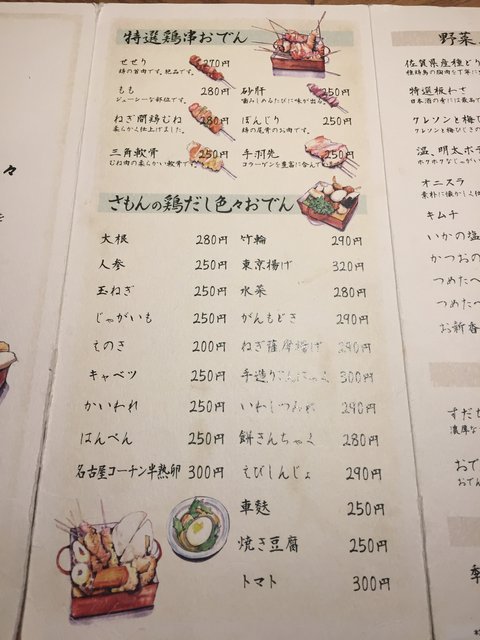 特選鶏串おでん
せせり 270円
鶏の首肉です。絶品です。
もも 280円
ジューシーな部位です。
ねぎ間鶏むね 280円
柔らかく仕上げました。
三角軟骨 250円
むね肉の柔らかい軟骨です。
砂肝 250円
噛みしめるたびに味が出る。
ぼんじり 250円
鶏の尾骨のお肉です。
手羽先 250円
コラーゲンを豊富に含んでいる。
さもんの鶏だし色々おでん
大根 280円
人参 250円
玉ねぎ 250円
じゃがいも 250円
えのき 200円
キャベツ 250円
かいわれ 250円
はんぺん 250円
名古屋コーチン半熟卵 300円
竹輪 290円
東京揚げ 320円
水菜 280円
がんもどき 290円
ねぎ薩摩揚げ 290円
手造りこんにゃく 300円
いわしつみれ 290円
餅きんちゃく 280円
えびしんじょ 290円
車麩 250円
焼き豆腐 250円
トマト 300円
々
野菜
佐賀県産種どり
特選板わさ
クレソンと梅
クレソンと梅ひじきの
温、明太ポテ
オニスラ
キムチ
いかの塩
かつおの
つめたべ
つめたべ
お新香
すだち
濃厚な
おでん
おでん
季